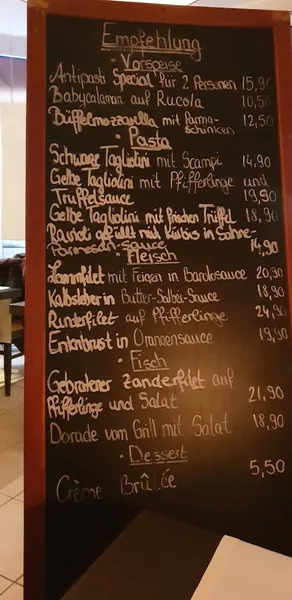 Empfehlung
· Vorspeise
Antipasti Special für 2 Personen 15,90
Babycalamari auf Rucola 10,50
Büffelmozzarella mit Parma- 12,50
schinken
· Pasta
Schwarze Tagliolini mit Scampi 14,90
Gelbe Tagliolini mit Pfifferlinge und
Trüffelsauce 19,90
Gelbe Tagliolini mit frischen Trüffel 18,90
Ravioli gefüllt mit Kürbis in Sahne-
Parmesan-sauce 14,90
· Fleisch
Lammfilet mit Feigen in Barolosauce 20,90
Kalbsleber in Butter-Salbei-Sauce 18,90
Runderfilet auf Pfifferlinge 24,90
Entenbrust in Orangensauce 19,90
· Fisch
Gebratener Zanderfilet auf
Pfifferlinge und Salat 21,90
Dorade vom Grill mit Salat 18,90
· Dessert
Crème Brûlée 5,50